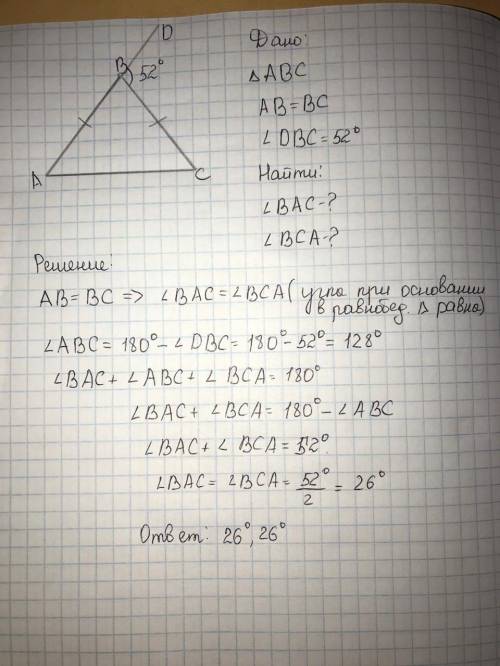 D
B 52°
A
C
Дано:
△ABC
AB=BC
∠DBC=52°
Найти:
∠BAC-?
∠BCA-?
Решение:
AB=BC => ∠BAC=∠BCA (углы при основании
в равнобед. △ равны)
∠ABC=180°-∠DBC=180°-52°=128°
∠BAC+∠ABC+∠BCA=180°
∠BAC+∠BCA=180°-∠ABC
∠BAC+∠BCA=52°
∠BAC=∠BCA=52°/2=26°
Ответ: 26°, 26°